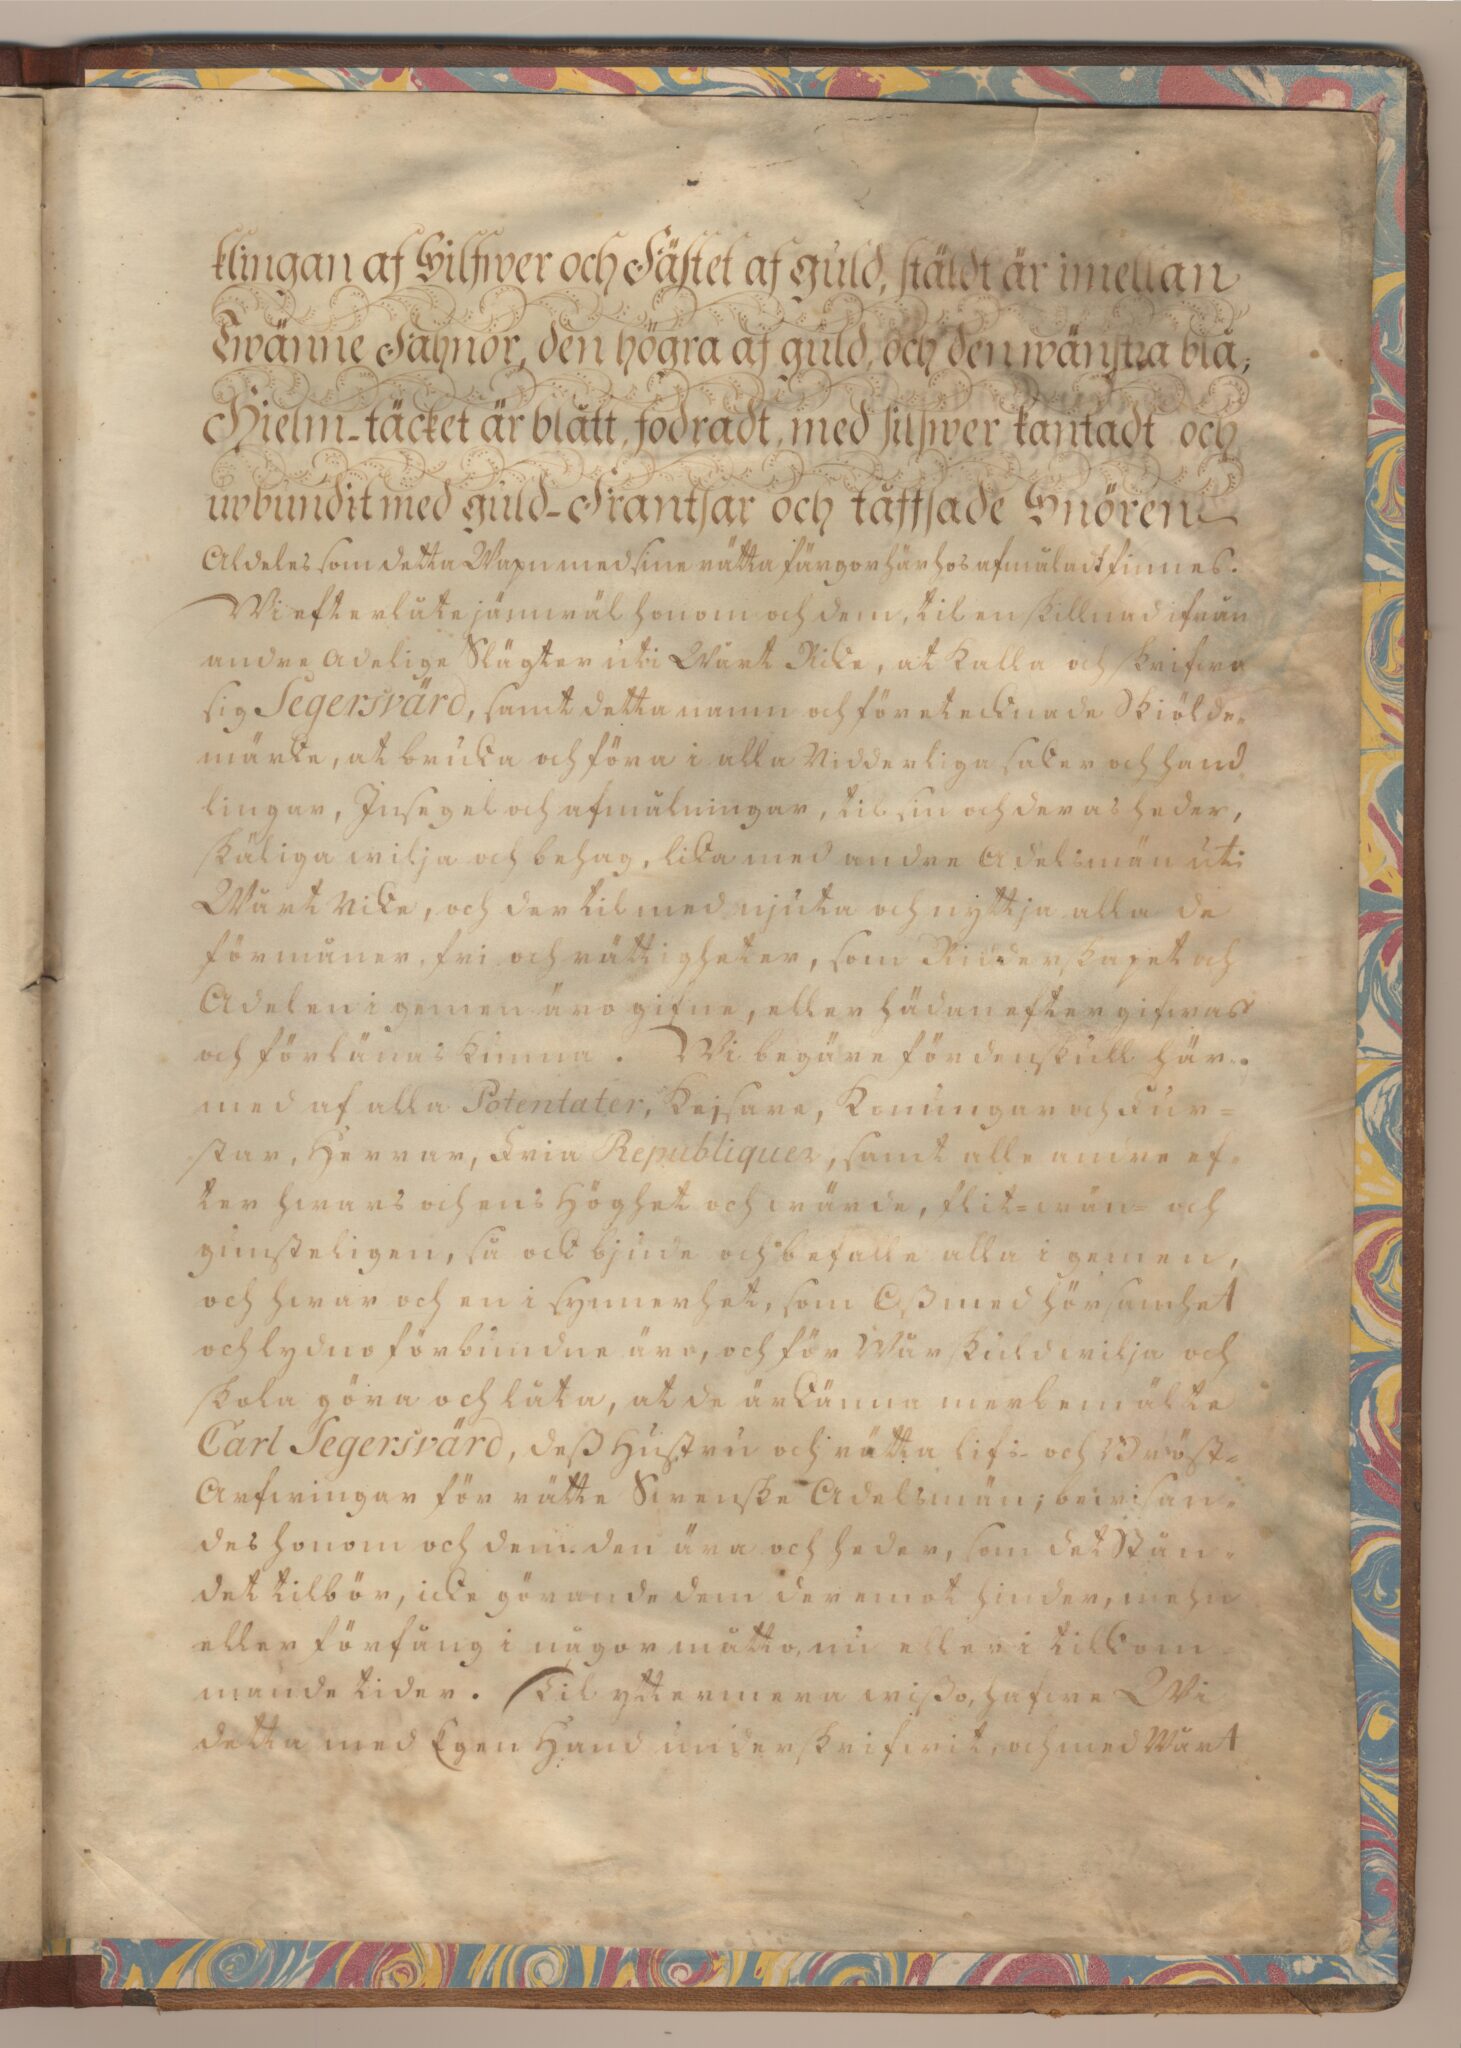 klingan af Silfwer och Fästet af guld, stäldt är imellan
Twänne Fahnor, den högra af guld, och den wänstra blå;
Hielm-täcket är blått, fodradt, med silfwer kantadt och
upbundit med guld-Frantsar och tåffsade Snören
Aldeles som detta Wapn med sine rätta färgor härhos afmåladt finnes.
Wi efterlåte jämwäl honom och dem, til en skillnad ifrån
andre Adelige Slägter uti Wårt Ricke, at kalla och skrifwa
sig Segersvärd, samt detta namn och företecknade Skiölde-
märke, at bruka och föra i alla Ridderliga saker och hand-
lingar, Insegel och afmålningar, til sin och deras heder,
skäliga wilja och behag, lika med andre Adelsmän uti
Wårt Ricke, och der til med njuta och nyttja alla de
förmåner, fri- och rättigheter, som Ridderskapet och
Adelen i gemen äro gifne, eller hädanefter gifwas
och förlänas kunna. Wi begäre fördenskull här-
med af alla Potentater, Kejsare, Konungar och Fur-
star, Herrar, Fria Republiquer, samt alle andre ef-
ter hwars och ens Höghet och wärde, flit- wän- och
gunsteligen, så ock bjude och befalle alla i gemen,
och hwar och en i synnerhet, som Oß med hörsamhet
och lydno förbundne äro, och för Wår skuld wilja och
skola göra och låta, at de ärkänna merbemälte
Carl Segersvärd, deß Hustru och rätta lifs- och Bröst-
Arfwingar för rätte Swenske Adelsmän; bewisan-
des honom och dem den ära och heder, som det Stån-
det tilbör, icke görande dem deremot hinder, mehn
eller förfång i någor måtto, nu eller i tilkom-
mande tider. Til yttermera wißo, hafwe Wi
detta med Egen Hand underskrifwit, och med Wårt